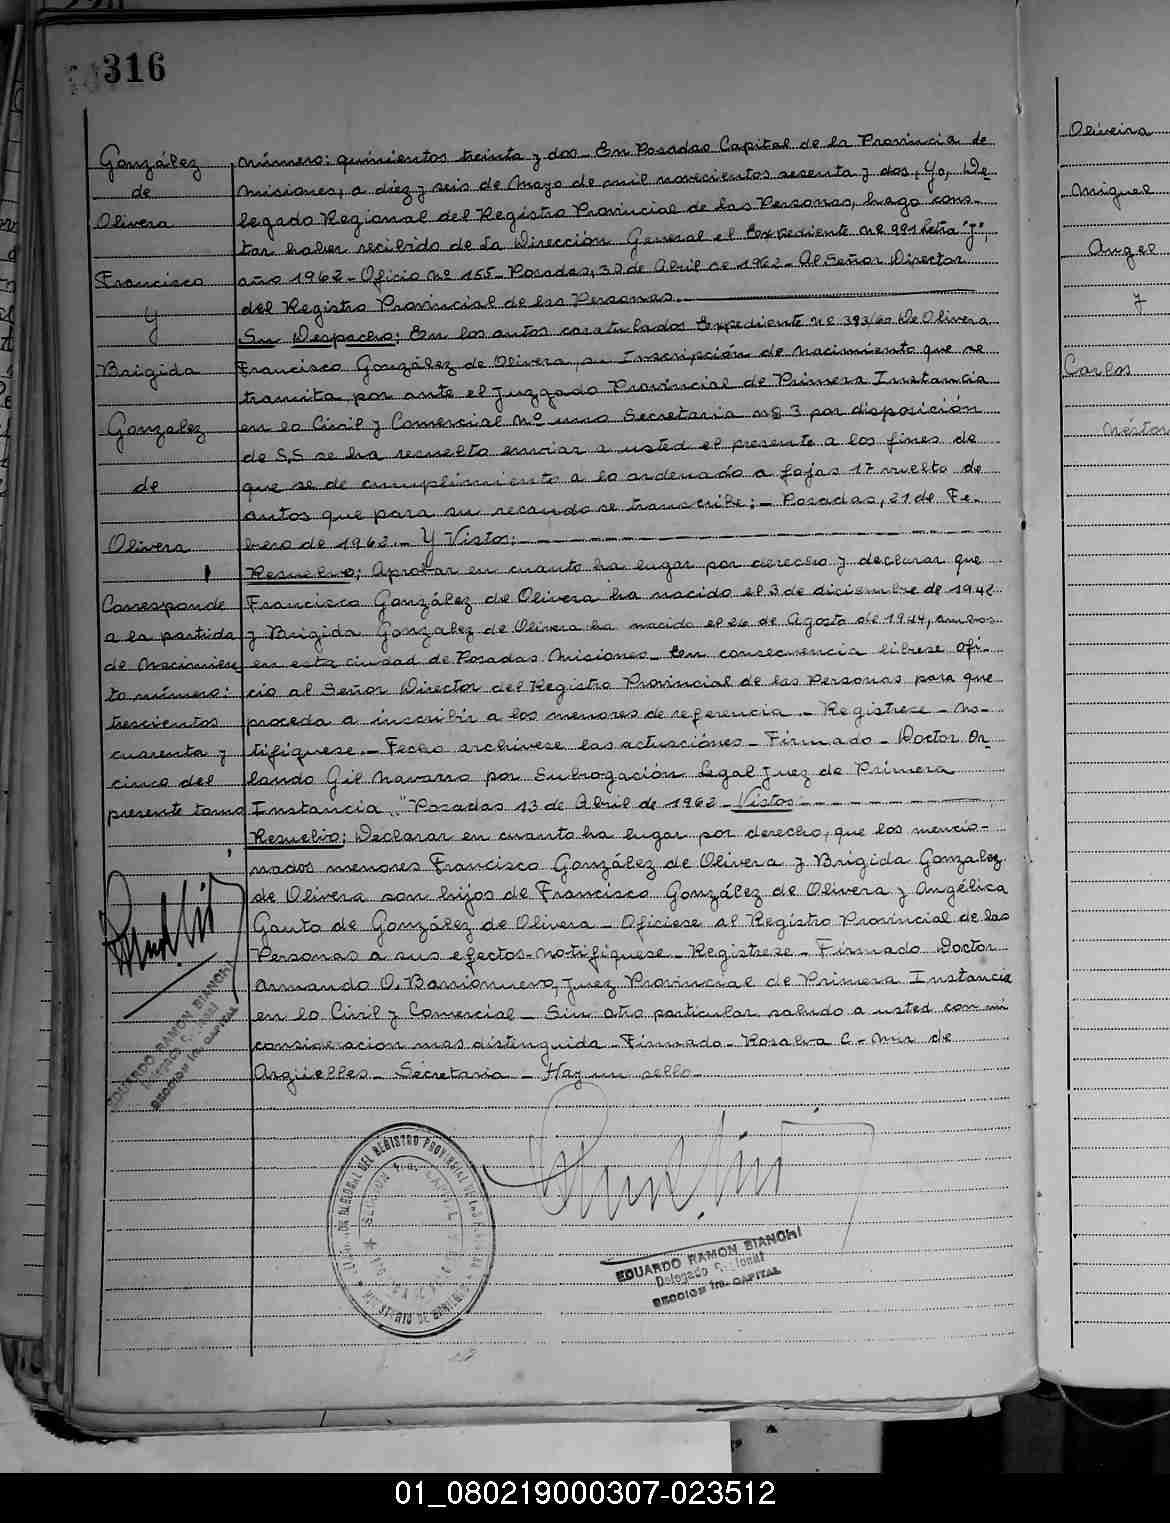 316
González
de
Olivera
Francisco
y
Brigida
Gonzalez
de
Olivera
Corresponde
a la partida
de Nacimien
to número:
trescientos
cuarenta y
cinco del
presente tomo
EDUARDO RAMON BIANCHI
SECCION 1ra. CAPITAL
número: quinientos treinta y dos_ En Posadas Capital de la Provincia de
Misiones, a diez y seis de Mayo de mil novecientos sesenta y dos, Yo, De-
legado Regional del Registro Provincial de las Personas, hago cons-
tar haber recibido de La Dirección General el Expediente nº 991 letra "J",
año 1962_ Oficio nº 155_ Posadas, 30 de Abril de 1962_ Al Señor Director
del Registro Provincial de las Personas.
Su Despacho: En los autos caratulados Expediente nº 393/60 De Olivera
Francisco González de Olivera, su Inscripción de Nacimiento que se
tramita por ante el Juzgado Provincial de Primera Instancia
en lo Civil y Comercial Nº uno Secretaria nº 3 por disposición
de S,S se ha resuelto enviar a usted el presente a los fines de
que se de cumplimiento a lo ordenado a fojas 17 vuelto de
autos que para su recaudo se transcribe:_ Posadas, 21 de Fe-
brero de 1962._ Y Vistos:
Resuelvo: Aprobar en cuanto ha lugar por derecho y declarar que
Francisco González de Olivera ha nacido el 3 de diciembre de 1942
y Brigida Gonzalez de Olivera ha nacido el 26 de Agosto de 1944, ambos
en esta ciudad de Posadas Misiones_ En consecuencia librese ofi-
cio al Señor Director del Registro Provincial de las Personas para que
proceda a inscribir a los menores de referencia._ Registrese_ No-
tifiquese._ Fecho archivese las actuaciónes_ Firmado_ Doctor Or-
lando Gil Navarro por Subrogación Legal Juez de Primera
Instancia "Posadas 13 de Abril de 1962_ Vistos
Resuelvo: Declarar en cuanto ha lugar por derecho, que los mencio-
nados menores Francisco González de Olivera y Brigida Gonzalez
de Olivera son hijos de Francisco González de Olivera y Angélica
Gauto de González de Olivera_ Oficiese al Registro Provincial de las
Personas a sus efectos-notifiquese_ Registrese_ Firmado Doctor
Armando O, Barrionuevo, Juez Provincial de Primera Instancia
en lo Civil y Comercial_ Sin otro particular saludo a usted con mi
consideracion mas distinguida_ Firmado_ Rosalva C_ Mur de
Argüelles_ Secretaria_ Hay un sello_
REGIONAL DEL REGISTRO PROVINCIAL DE LAS PERSONAS
SECCION 1ra. CAPITAL
EDUARDO RAMON BIANCHI
Delegado Regional
SECCION 1ra. CAPITAL
Oliveira
Miguel
Angel
y
Carlos
Néstor
01_080219000307-023512